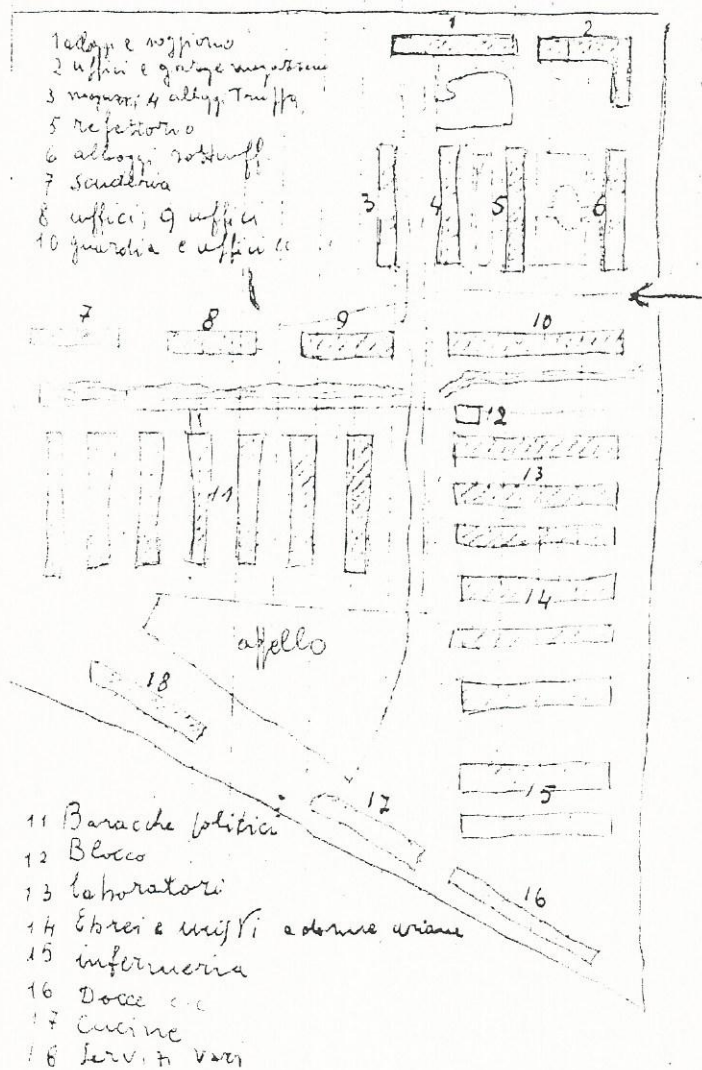 1 alloggi e soggiorno
2 uffici e garage magazzino
3 magazzi, 4 alloggi Truffa
5 refettorio
6 alloggi sottuff
7 Scuderia
8 uffici, 9 uffici
10 guardia e uffici
1
2
3
4
5
6
7
8
9
10
12
13
11
14
appello
18
15
17
16
11 Baracche politici
12 Blocco
13 laboratori
14 Ebrei e misti a donne ariane
15 infermeria
16 Docce
17 Cucine
18 Servizi vari